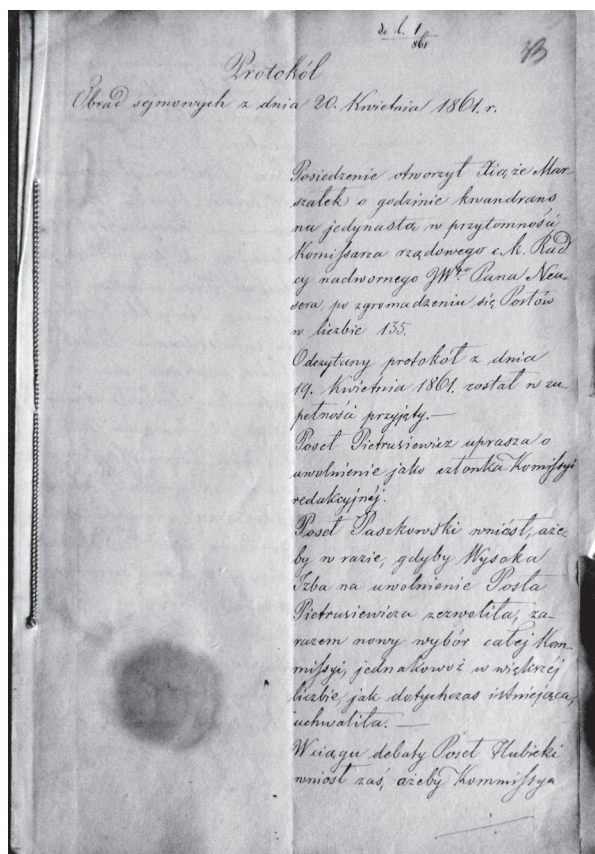 do l. 1
861
Protokół
Obrad sejmowych z dnia 20. Kwietnia 1861. r.
Posiedzenie otworzył Xiąże Mar-
szałek o godzinie kwandrans
na jedynastą w przytomności
Komissarza rządowego c. k. Rad
cy nadwornego JWgo Pana Neu-
sera, po zgromadzeniu się Posłów
w liczbie 135.
Odczytany protokół z dnia
19. Kwietnia 1861. został w zu
pełności przyjęty.—
Poseł Pietrusiewicz uprasza o
uwolnienie jako członka Komissyi
redakcyjnéj.
Poseł Paszkowski wniósł, aże-
by w razie, gdyby Wysoka
Izba na uwolnienie Posła
Pietrusiewicza zezwoliła, za-
razem nowy wybór całej Kom-
missyi, jednakowoż w większéj
liczbie, jak dotychczas istniejąca,
uchwaliła.—
W ciągu debaty Poseł Hubicki
wniósł zaś, ażeby Kommissya